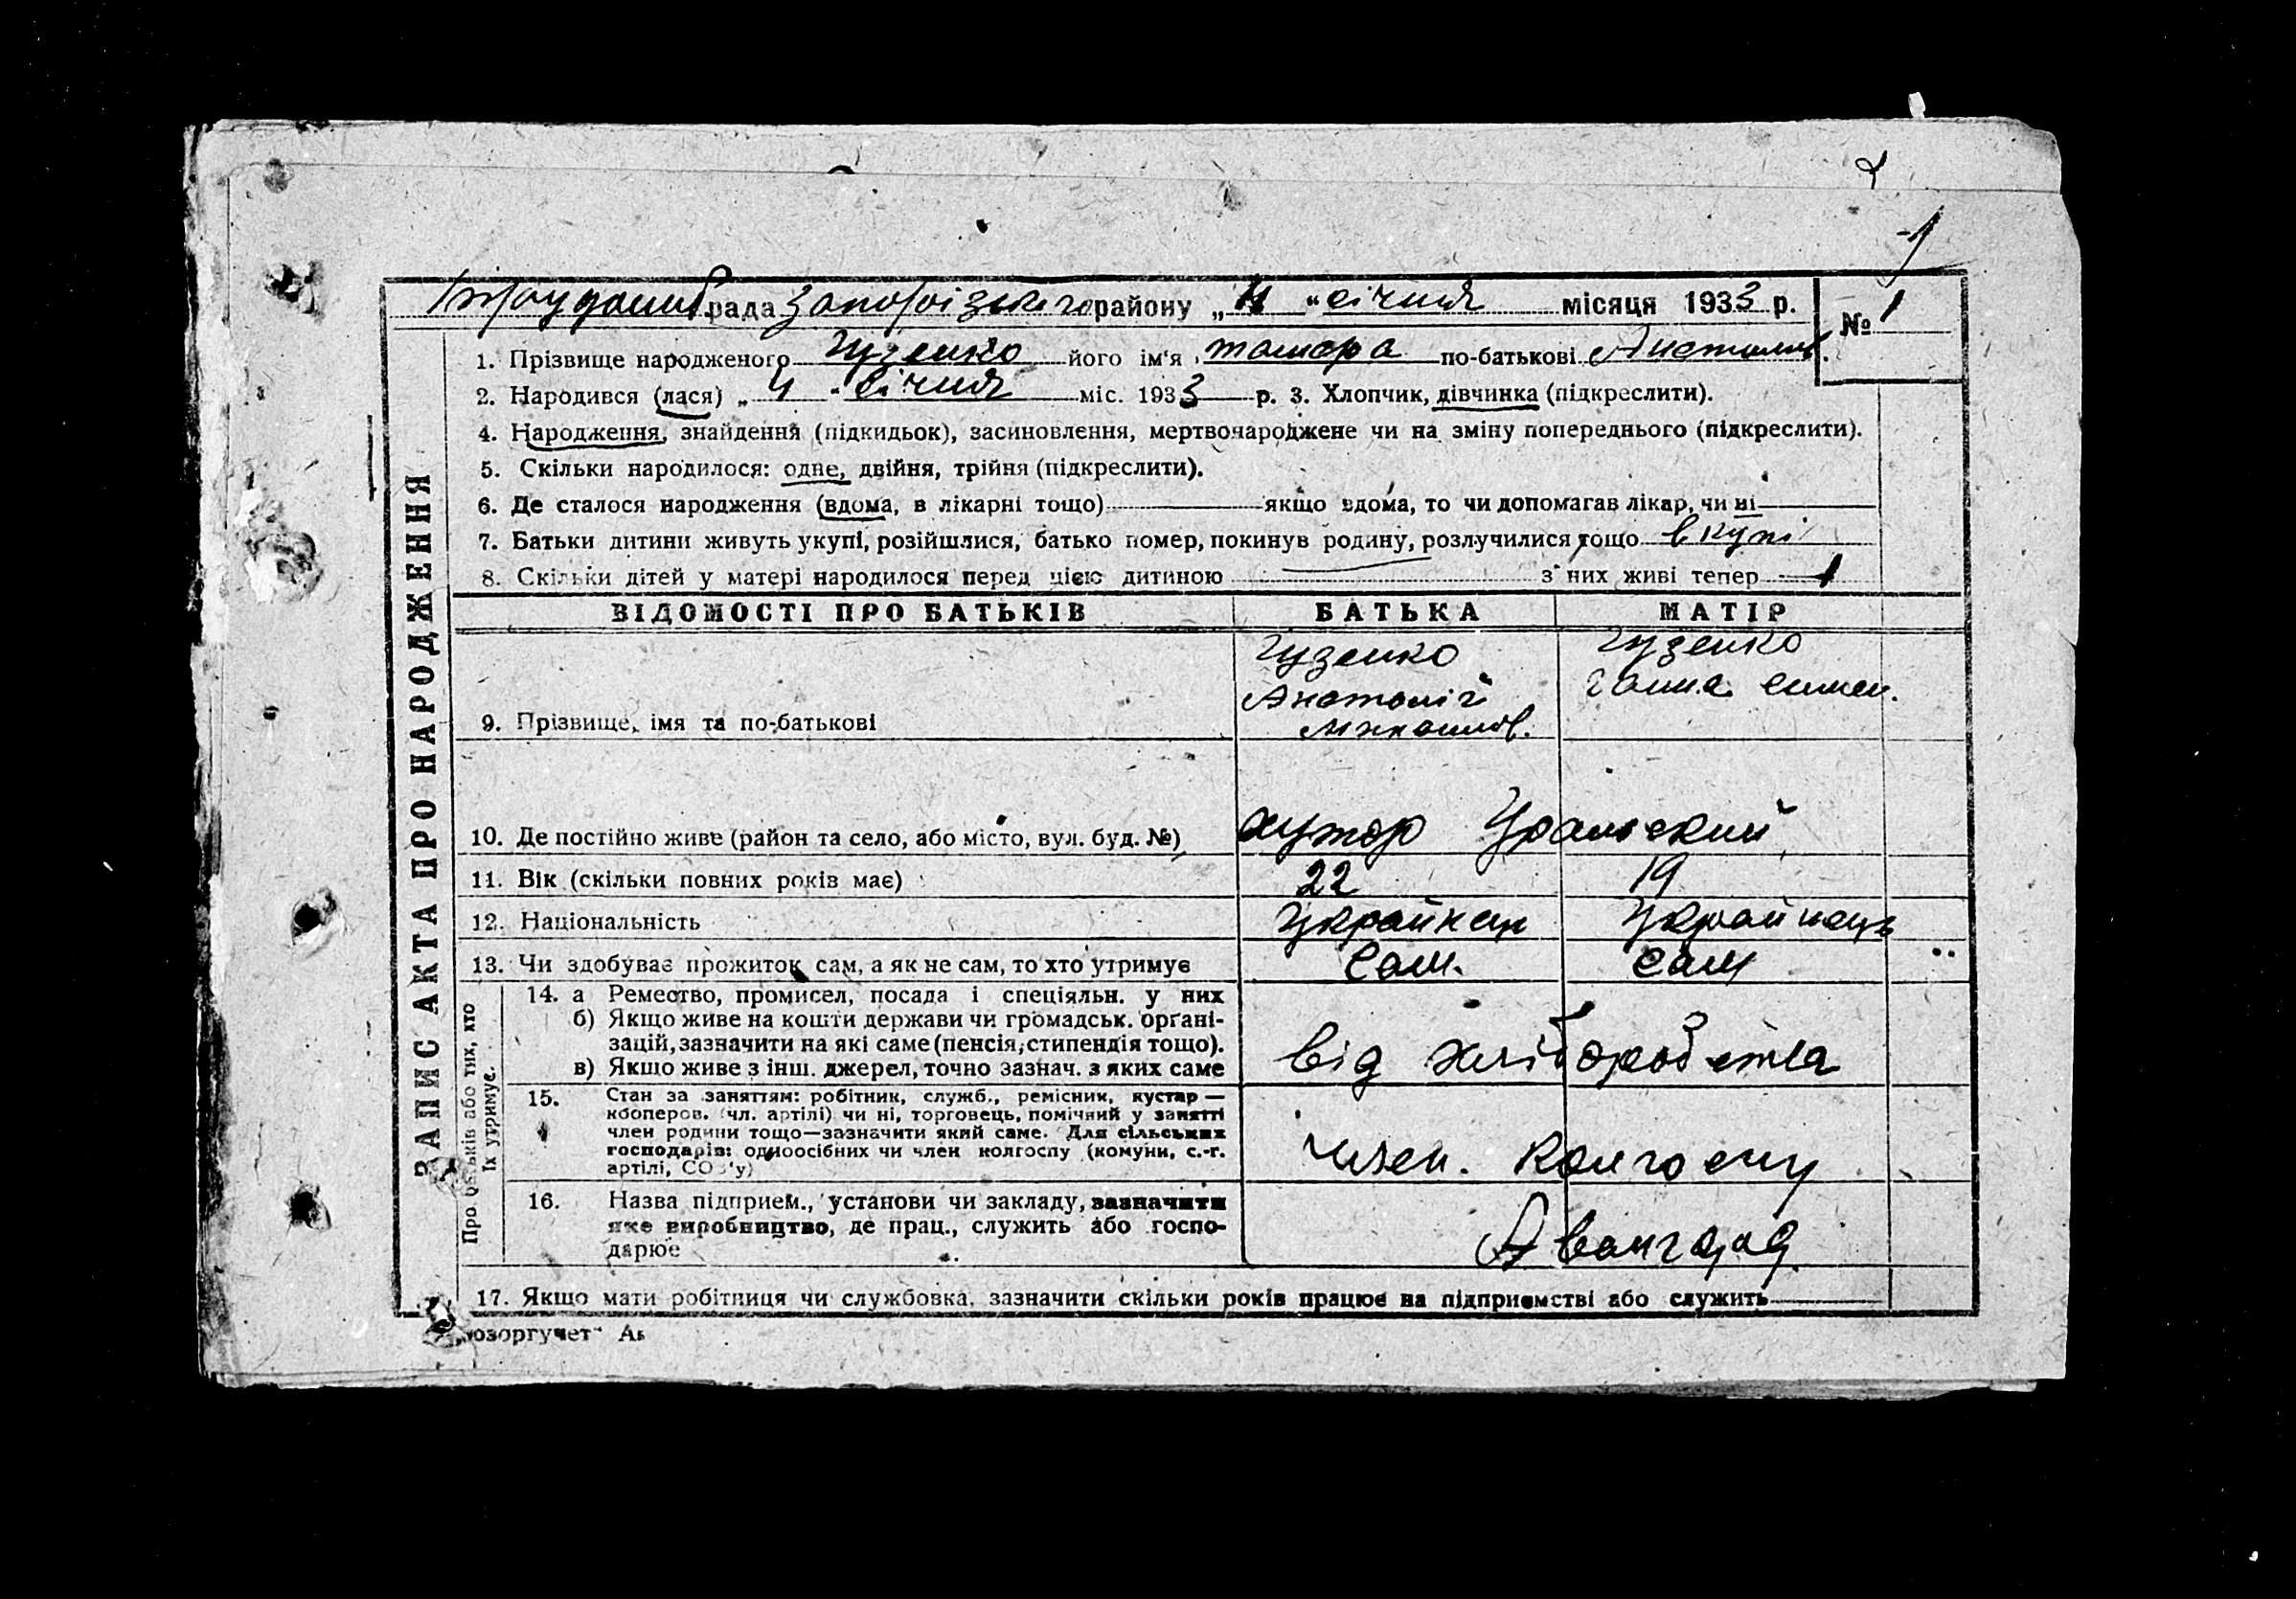 1
рада Запорізького району „4“ січня місяця 1933 р.
№ 1
1. Прізвище народженого Гузенко його ім'я тамара по-батькові Анатолів.
2. Народився (лася) „ 4 “ січня міс. 1933 р. 3. Хлопчик, дівчинка (підкреслити).
4. Народження, знайдення (підкидьок), засиновлення, мертвонароджене чи на зміну попереднього (підкреслити).
5. Скільки народилося: одне, двійня, трійня (підкреслити).
6. Де сталося народження (вдома, в лікарні тощо) якщо вдома, то чи допомагав лікар, чи ні
7. Батьки дитини живуть укупі, розійшлися, батько помер, покинув родину, розлучилися тощо в купі
8. Скільки дітей у матері народилося перед цією дитиною — з них живі тепер 1
ЗАПИС АКТА ПРО НАРОДЖЕННЯ
ВІДОМОСТІ ПРО БАТЬКІВ БАТЬКА МАТІР
9. Прізвище, імя та по-батькові
Гузенко
Анатолій
Гузенко
Ганна Симен.
10. Де постійно живе (район та село, або місто, вул. буд. №) хутор Уральский
11. Вік (скільки повних років має) 22 19
12. Національність Украйнец Украйнець
13. Чи здобуває прожиток сам, а як не сам, то хто утримує Сам. Сам
Про батьків або тих, хто
їх утримує.
14. а Ремество, промисел, посада і спеціяльн. у них
б) Якщо живе на кошти держави чи громадськ. органі-
зацій, зазначити на які саме (пенсія, стипендія тощо).
в) Якщо живе з інш. джерел, точно зазнач. з яких саме
від хліборобства
15. Стан за заняттям: робітник, служб., ремісник, кустар —
кооперов. (чл. артілі) чи ні, торговець, помічний у занятті
член родини тощо—зазначити який саме. Для сільських
господарів: одноосібних чи член колгоспу (комуни, с.-г.
артілі, СОЗ'у)
член. Колгоспу
16. Назва підприєм., установи чи закладу, зазначити
яке виробництво, де прац., служить або госпо-
дарює
Авангард
17. Якщо мати робітниця чи службовка, зазначити скільки років працює на підприємстві або служить
„юзоргучет“